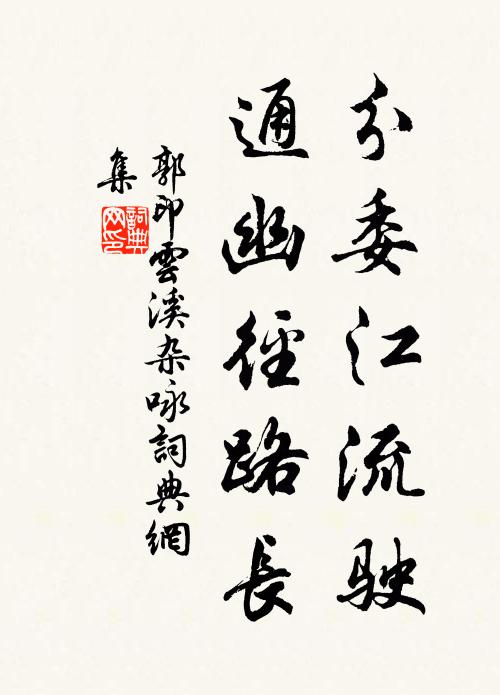 分委江流駛
通幽徑路長
郭印雲溪杂咏詞典網
集
詞典
网印